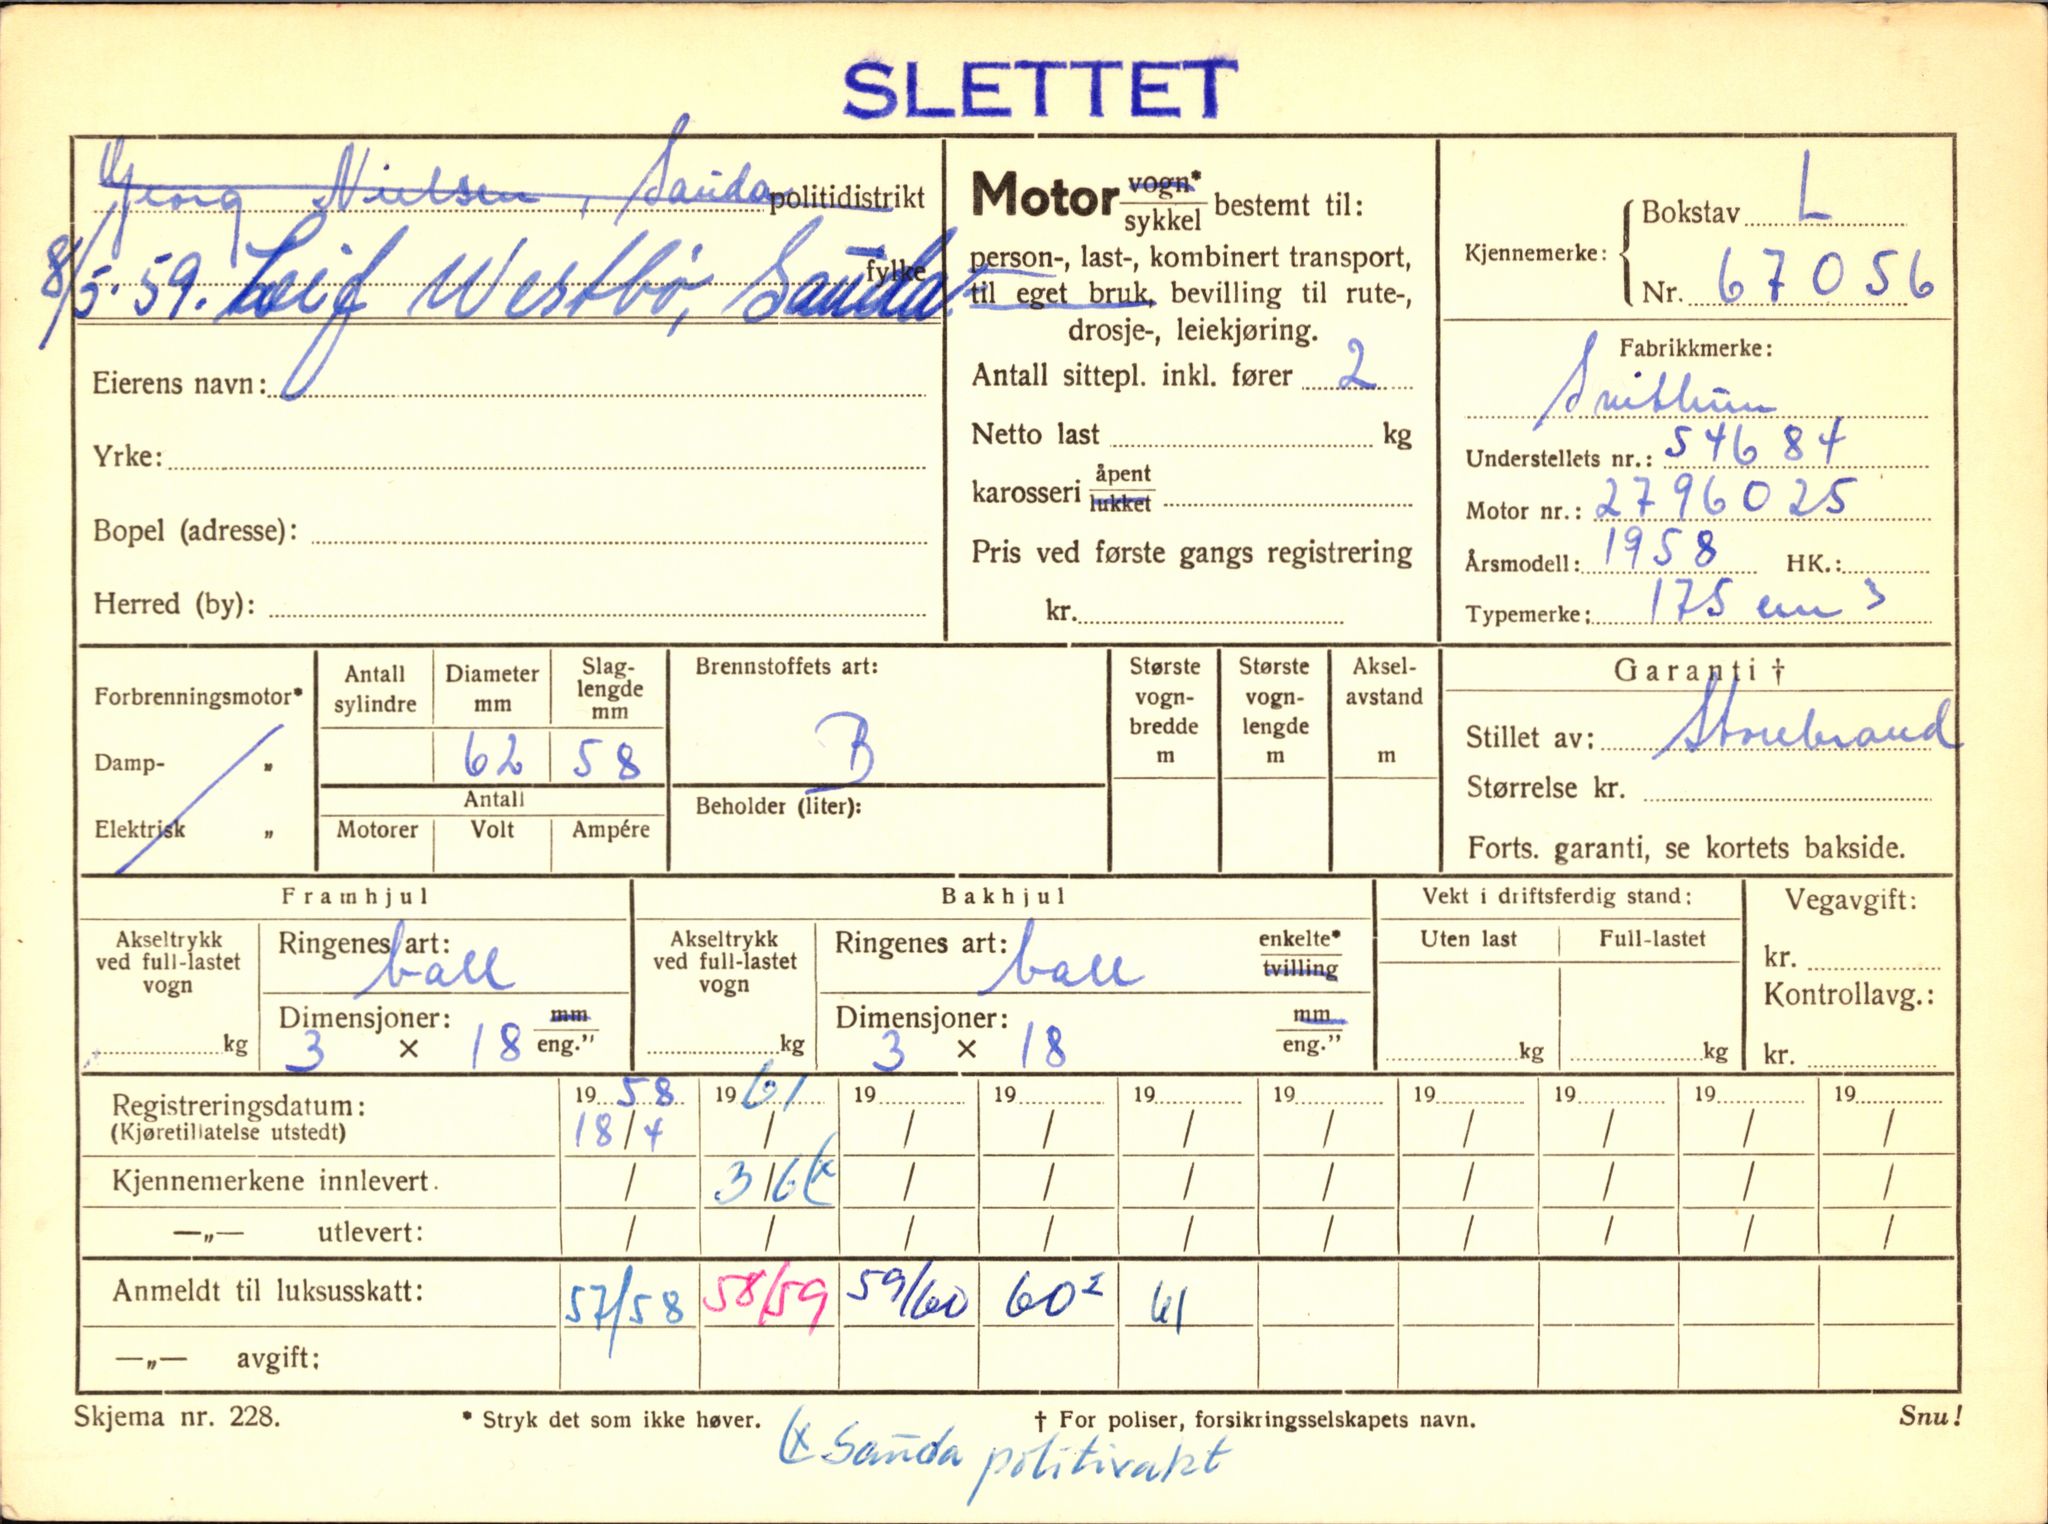 SLETTET
Georg Nielsen, Sauda politidistrikt
8/5-59. Leif Westbø, Sauda. fylke
Eierens navn:
Yrke:
Bopel (adresse):
Herred (by):
Motor vogn* / sykkel bestemt til:
person-, last-, kombinert transport,
til eget bruk, bevilling til rute-,
drosje-, leiekjøring.
Antall sittepl. inkl. fører 2
Netto last kg
karosseri åpent / lukket
Pris ved første gangs registrering
kr.
Kjennemerke: Bokstav L
Nr. 67056
Fabrikkmerke:
Svithun
Understellets nr.: 54684
Motor nr.: 2796025
Årsmodell: 1958 HK.:
Typemerke: 175 cm3
Forbrenningsmotor*
Damp- „
Elektrisk „
Antall sylindre
Diameter mm 62
Slaglengde mm 58
Antall
Motorer Volt Ampére
Brennstoffets art:
B
Beholder (liter):
Største vognbredde m
Største vognlengde m
Akselavstand m
Garanti †
Stillet av: Storebrand
Størrelse kr.
Forts. garanti, se kortets bakside.
Framhjul
Akseltrykk ved full-lastet vogn kg
Ringenes art: ball
Dimensjoner: mm / eng."
3 × 18
Bakhjul
Akseltrykk ved full-lastet vogn kg
Ringenes art: ball enkelte* / tvilling
Dimensjoner: mm / eng."
3 × 18
Vekt i driftsferdig stand:
Uten last Full-lastet
kg kg
Vegavgift:
kr.
Kontrollavg.:
kr.
Registreringsdatum: 19 58 19 61 19 19 19 19 19 19 19 19
(Kjøretillatelse utstedt) 18/4 / / / / / / / / /
Kjennemerkene innlevert. / 3/6 (x / / / / / / / /
—„— utlevert: / / / / / / / / / /
Anmeldt til luksusskatt: 57/58 58/59 59/60 60² 61
—„— avgift:
Skjema nr. 228. * Stryk det som ikke høver. † For poliser, forsikringsselskapets navn. Snu!
(x Sauda politivakt